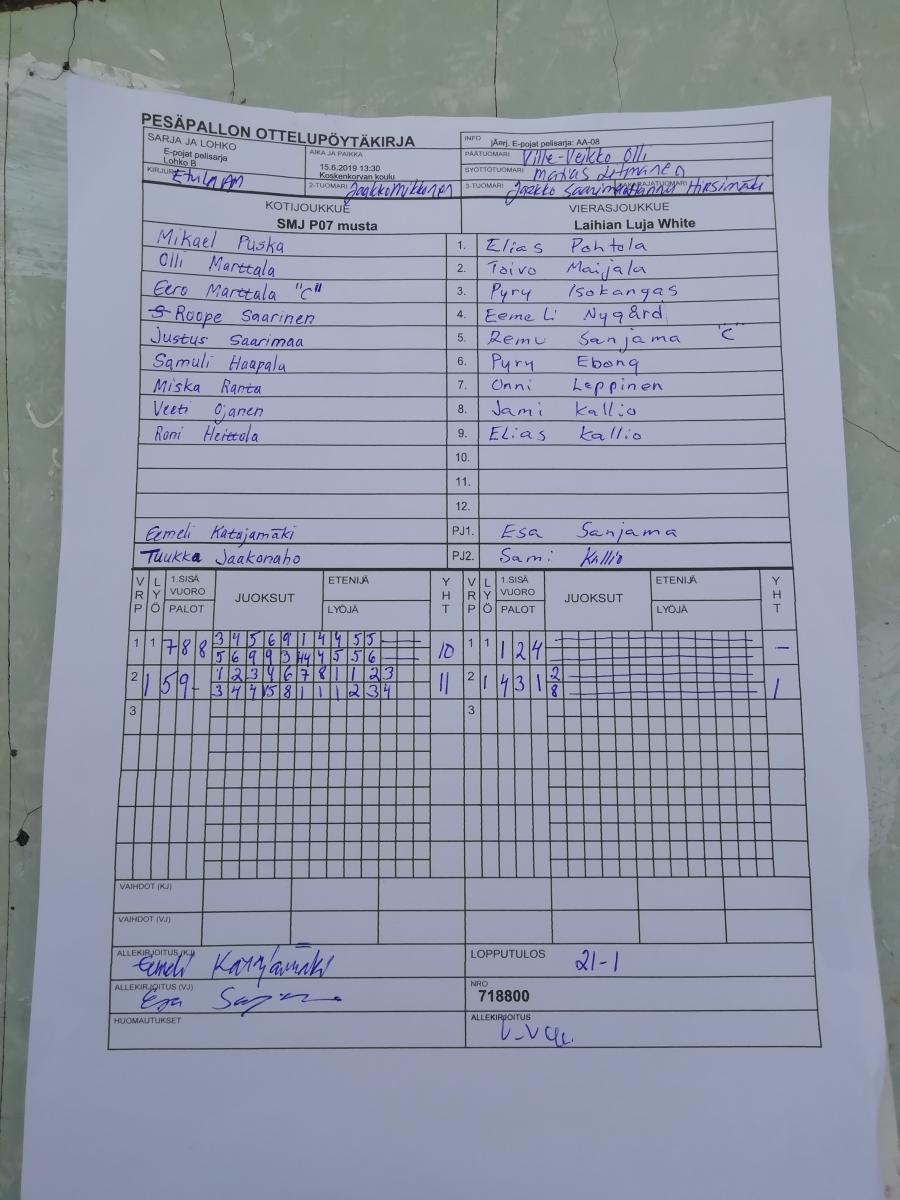 PESÄPALLON OTTELUPÖYTÄKIRJA
SARJA JA LOHKO
E-pojat pelisarja
Lohko B
AIKA JA PAIKKA
15.6.2019 13:30
Koskenkorvan koulu
INFO
jÄnrj. E-pojat pelisarja: AA-08
PÄÄTUOMARI Ville-Veikko Olli
SYÖTTÖTUOMARI
KIRJURI Etula AM
2-TUOMARI Jaakko Mikkonen
3-TUOMARI Jaakko Hirsimäki
KOTIJOUKKUE VIERASJOUKKUE
SMJ P07 musta Laihian Luja White
Mikael Puska 1. Elias Pohtola
Olli Marttala 2. Toivo Maijala
Eero Marttala "C" 3. Pyry Isokangas
Roope Saarinen 4. Eemeli Nygård
Justus Saarimaa 5. Remu Sanjama "C"
Samuli Haapala 6. Pyry Ebong
Miska Ranta 7. Onni Leppinen
Veeti Ojanen 8. Jami Kallio
Roni Heittola 9. Elias Kallio
10.
11.
12.
Eemeli Katajamäki PJ1. Esa Sanjama
Tuukka Jaakonaho PJ2. Sami Kallio
VRP LYÖ 1.SISÄ VUORO PALOT JUOKSUT ETENIJÄ LYÖJÄ YHT VRP LYÖ 1.SISÄ VUORO PALOT JUOKSUT ETENIJÄ LYÖJÄ YHT
1 1 7 8 8 3 4 5 6 9 1 4 4 5 5 10 1 1 1 2 4 -
5 6 9 9 3 4 4 5 5 6
2 1 5 9 - 1 2 3 4 6 7 8 1 1 2 3 11 2 1 4 3 1 2 1
3 4 4 5 8 1 1 1 2 3 4 8
3 3
VAIHDOT (KJ)
VAIHDOT (VJ)
ALLEKIRJOITUS (KJ) Eemeli Katajamäki
LOPPUTULOS 21-1
ALLEKIRJOITUS (VJ) Esa
NRO
718800
HUOMAUTUKSET
ALLEKIRJOITUS